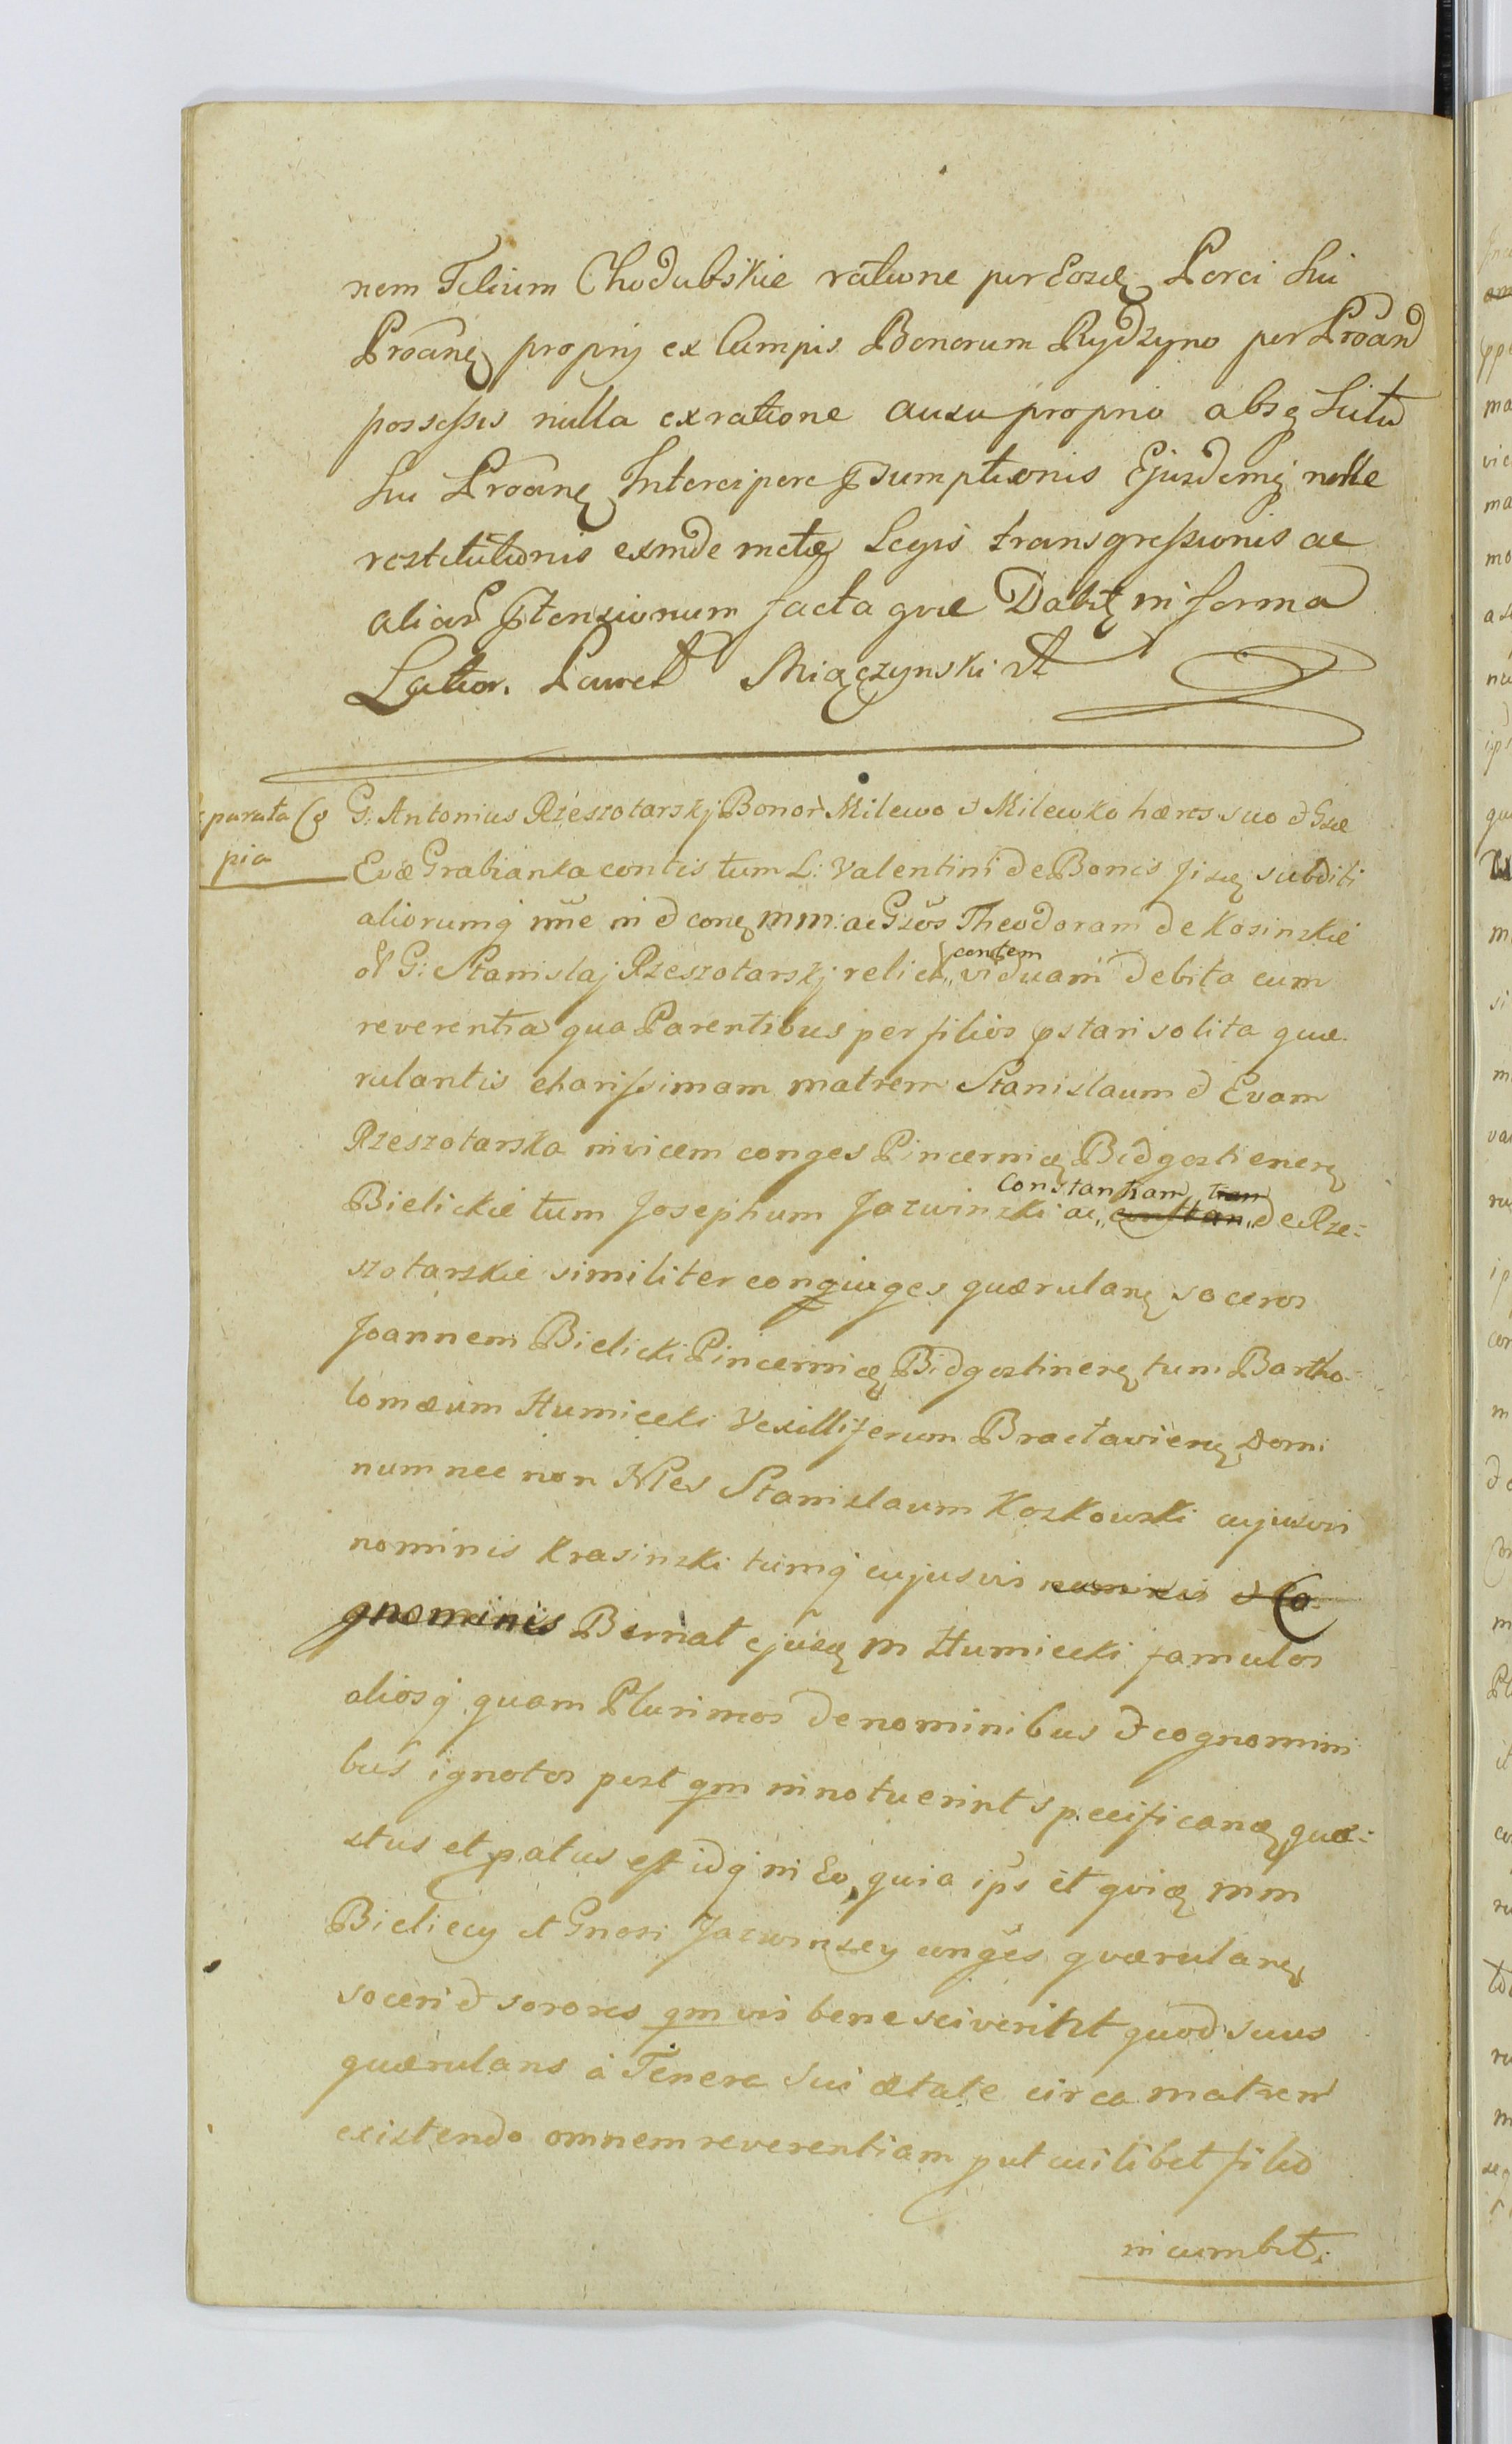 nem Filium Chodubskie ratione per Eosdę Porci Sui
Proanę proprij ex Campis Bonorum Rydzyno per Proand
possessis nulla ex ratione ausu proprio absq Scitu
Sui Proanę Intercipere psumptionis Ejusdemq nolle
restitutionis exinde metę Legis transgressionis ac
aliar ptensionum facta qvæ Dabit in forma
Lator. Paweł Miączynski
parata Co
pia
G: Antonius Rzeszotarskj Bonor Milewo & Milewko hæres suo & Gsæ
Evæ Grabianka contis tum L: Valentini de Bonis jisdę subditi
aliorumq nne in & conę mm: ac Gsos Theodoram de Kosinskie
ol G: Stanislaj Rzeszotarskj relict contem viduam debita cum
reverentia qua Parentibus per filios pstari solita quæ
rulantis charissimam matrem Stanislaum & Evam
Rzeszotarska invicem conges Pincernię Bidgostienerę
Bielickie tum Josephum Jazwinski ac Constantiam de Rze:
szotarskie similiter congiuges quærulanę soceros
Joannem Bielicki Pincernię Bidgostinerę tum Bartho:
lomæum Humiecki Vexilliferum Bractavienę Domi
num nec non Nles Stanislaum Koskowski cujusvis
nominis Krasinski tumq cujusvis nominis & Co
gnominis Bernat ejusdę m Humiecki famulos
aliosq quam Plurimos de nominibus & cognomini
bus ignotos post qm innotuerint specificanę quæ:
stus et patus est idq in Eo, quia ips et qvię mm
Bieliccy et Gnosi Jazwinscy conges qværulanę
soceri & sorores qmvis bene sciverint quod suus
quærulans à Tenera sui ætate circa matrem
existendo omnem reverentiam put cuilibet filio
incumbit: